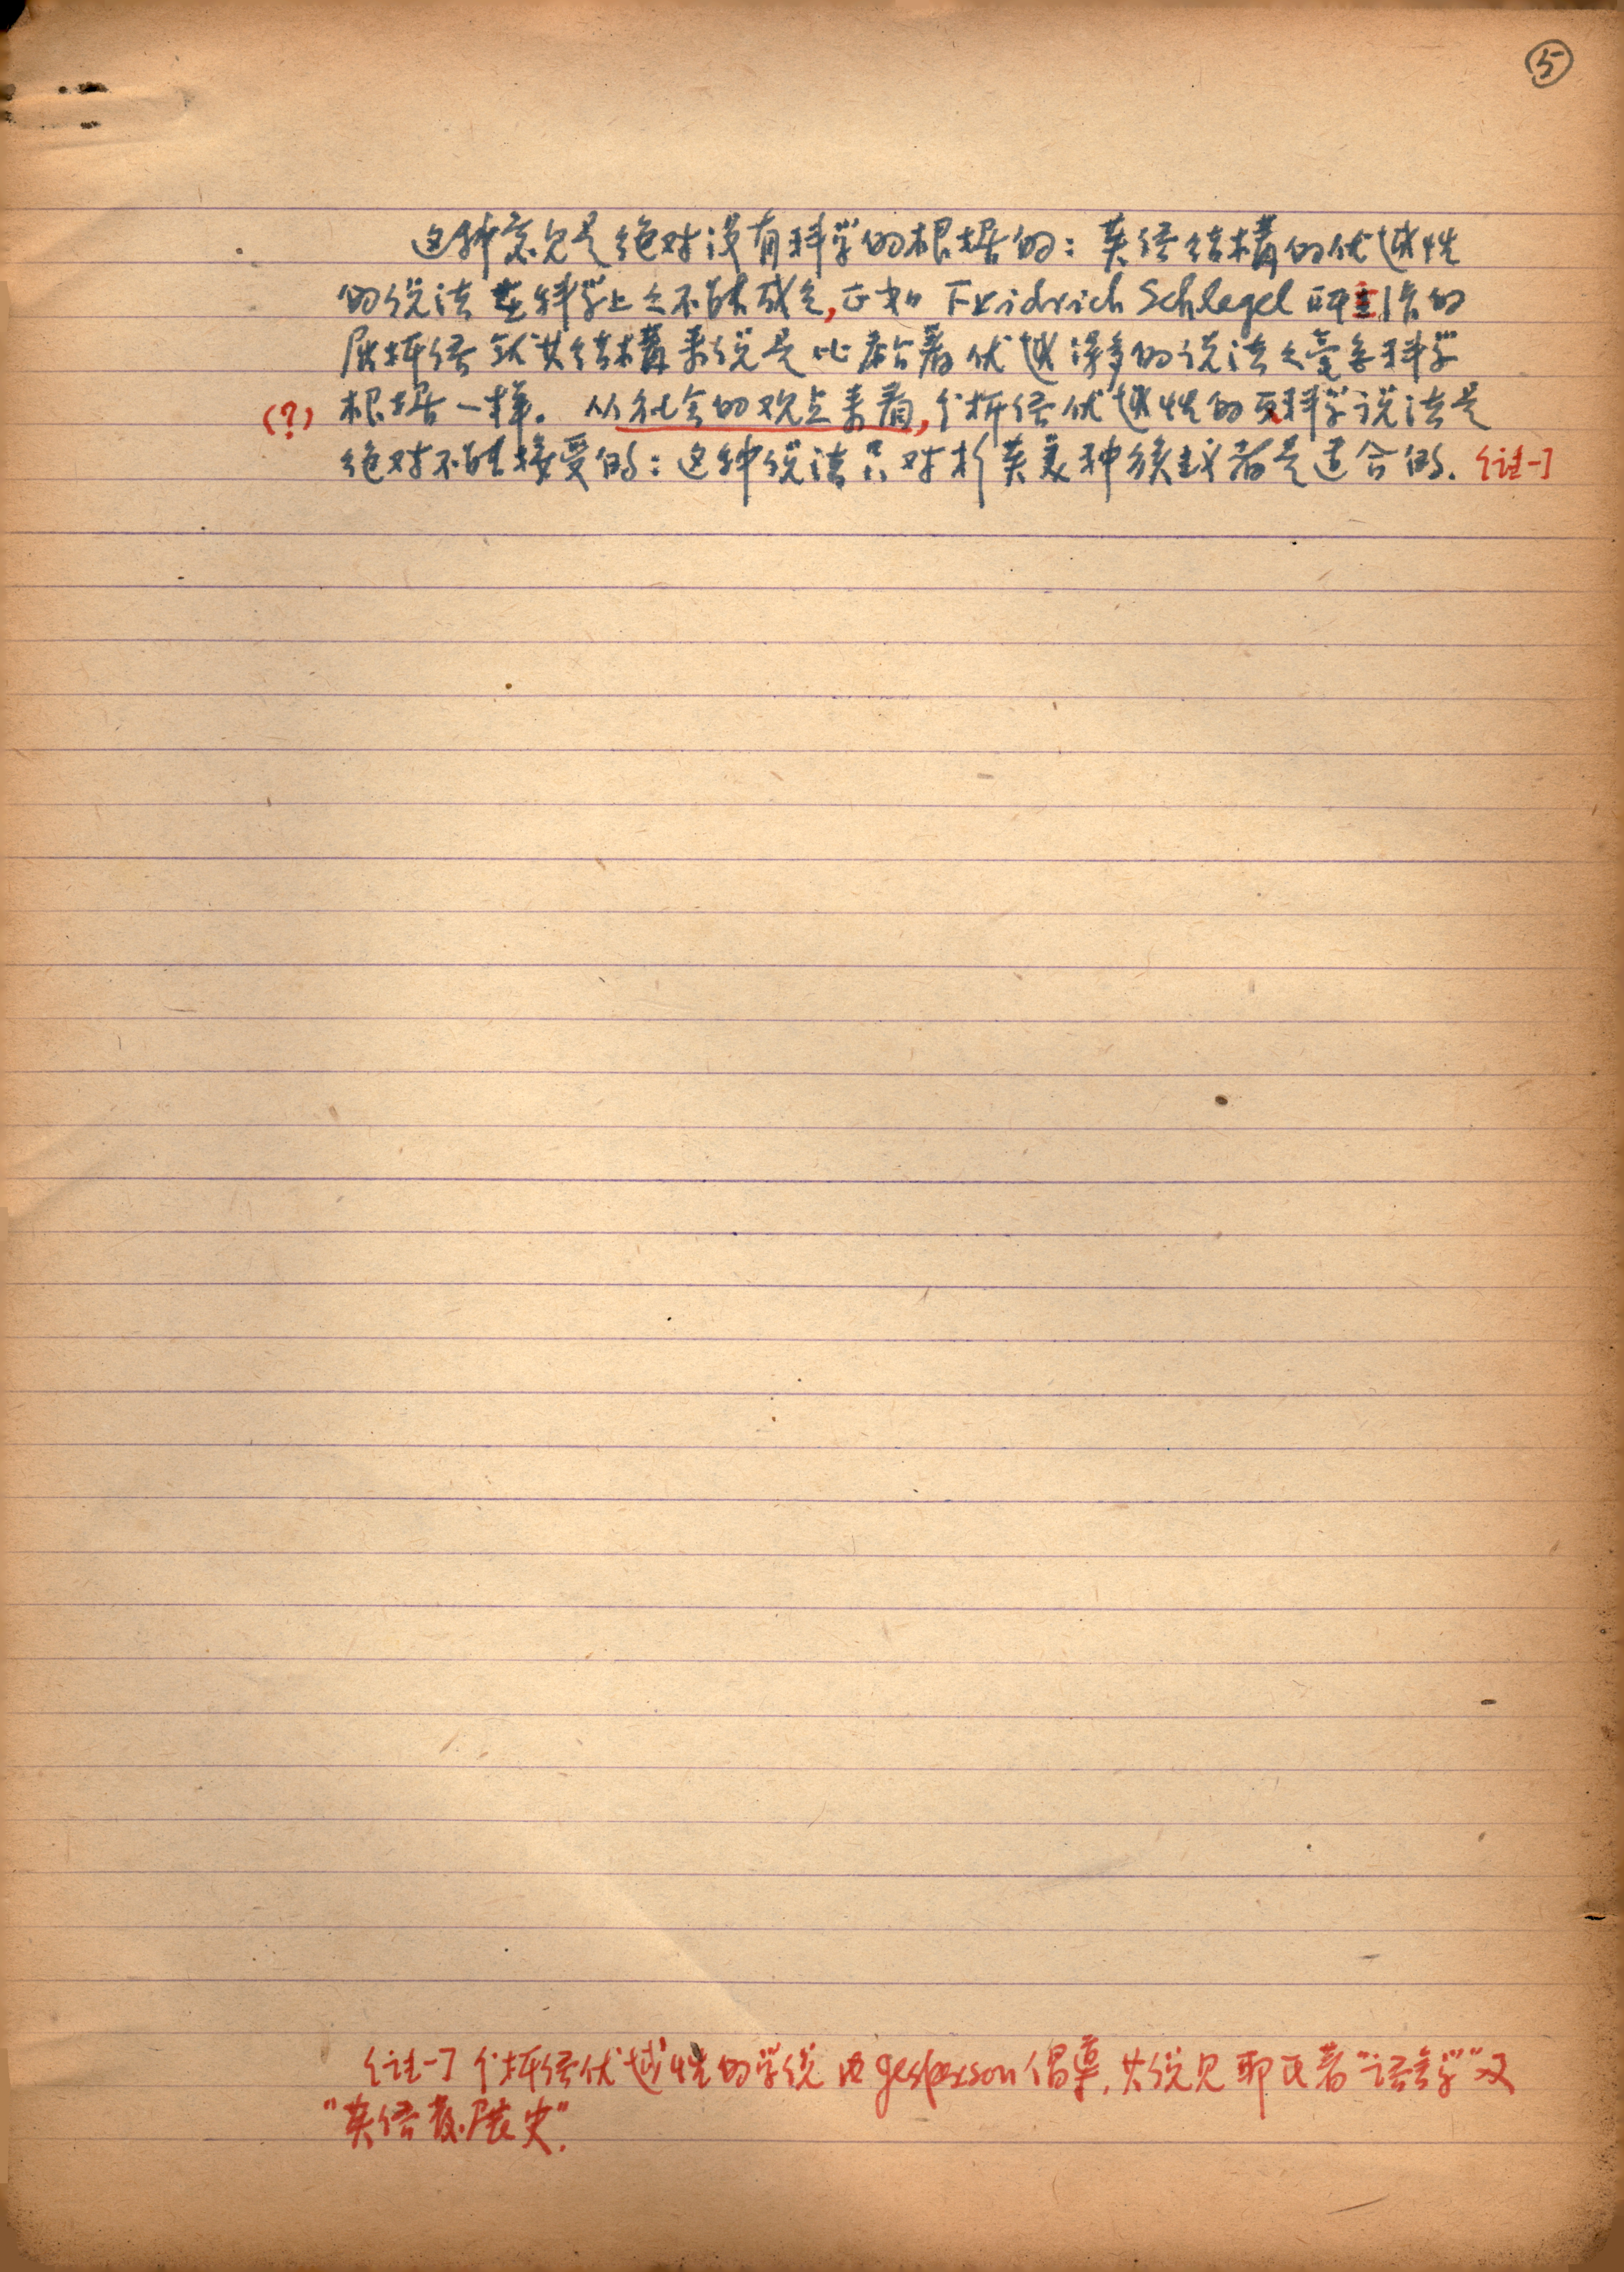 ⑤
这种意见是绝对没有科学的根据的：英语结构的优越性
的说法在科学上之不能成立，正如 Fridrich Schlegel 所创作的
屈折语就其结构来说是比粘着优越得多的说法之毫无科学
(?) 根据一样。从社会的观点来看，分析语优越性的科学说法是
绝对不能接受的：这种说法只对于英美种族主义者是适合的．〔註一〕
〔註一〕分析语优越性的学说由 Jesperson 倡导，其说见耶氏著“语言学”及
“英语发展史”．